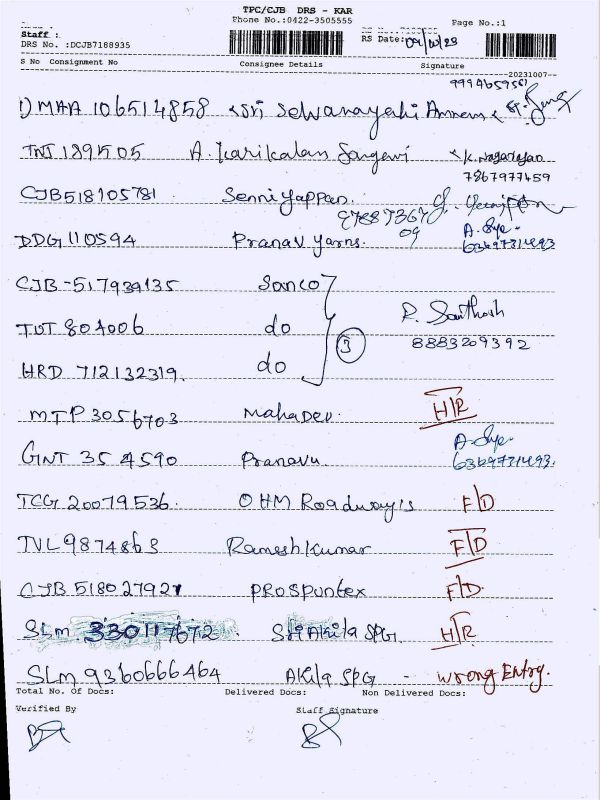 TPC/CJB DRS - KAR
Phone No.:0422-3505555
Page No.:1
Staff :
DRS No. :DCJB7188935
RS Date:
S No Consignment No Consignee Details Signature
20231007--
9994659561
1) MAA 106514858 Sri Selvanayaki Annem
TNJ 189505 A. Karikalan Sangavi K. Nagarajan
7867977459
CJB518105781 Senniyappan
DDG 110594 Pranav Yarns. A. Siye.
6369731493
CJB-517939135 Sanco
TUT 804006 do 3 R. Santhosh
8883209392
HRD 712132319. do
MTP 3056703 Mahadev. H/R
GNT 354590 Pranavu. A. Siye.
6369731493.
TCG 20079536. OHM Roadway's F/D
TVL 9874863 Rameshkumar F/D
CJB 518027921 PROSPUNTEX F/D
SLM 330117672 Sri Akila SPG. H/R
SLM 9360666464 Akila SPG - Wrong Entry.
Total No. of Docs: Delivered Docs: Non Delivered Docs:
Verified By Staff Signature